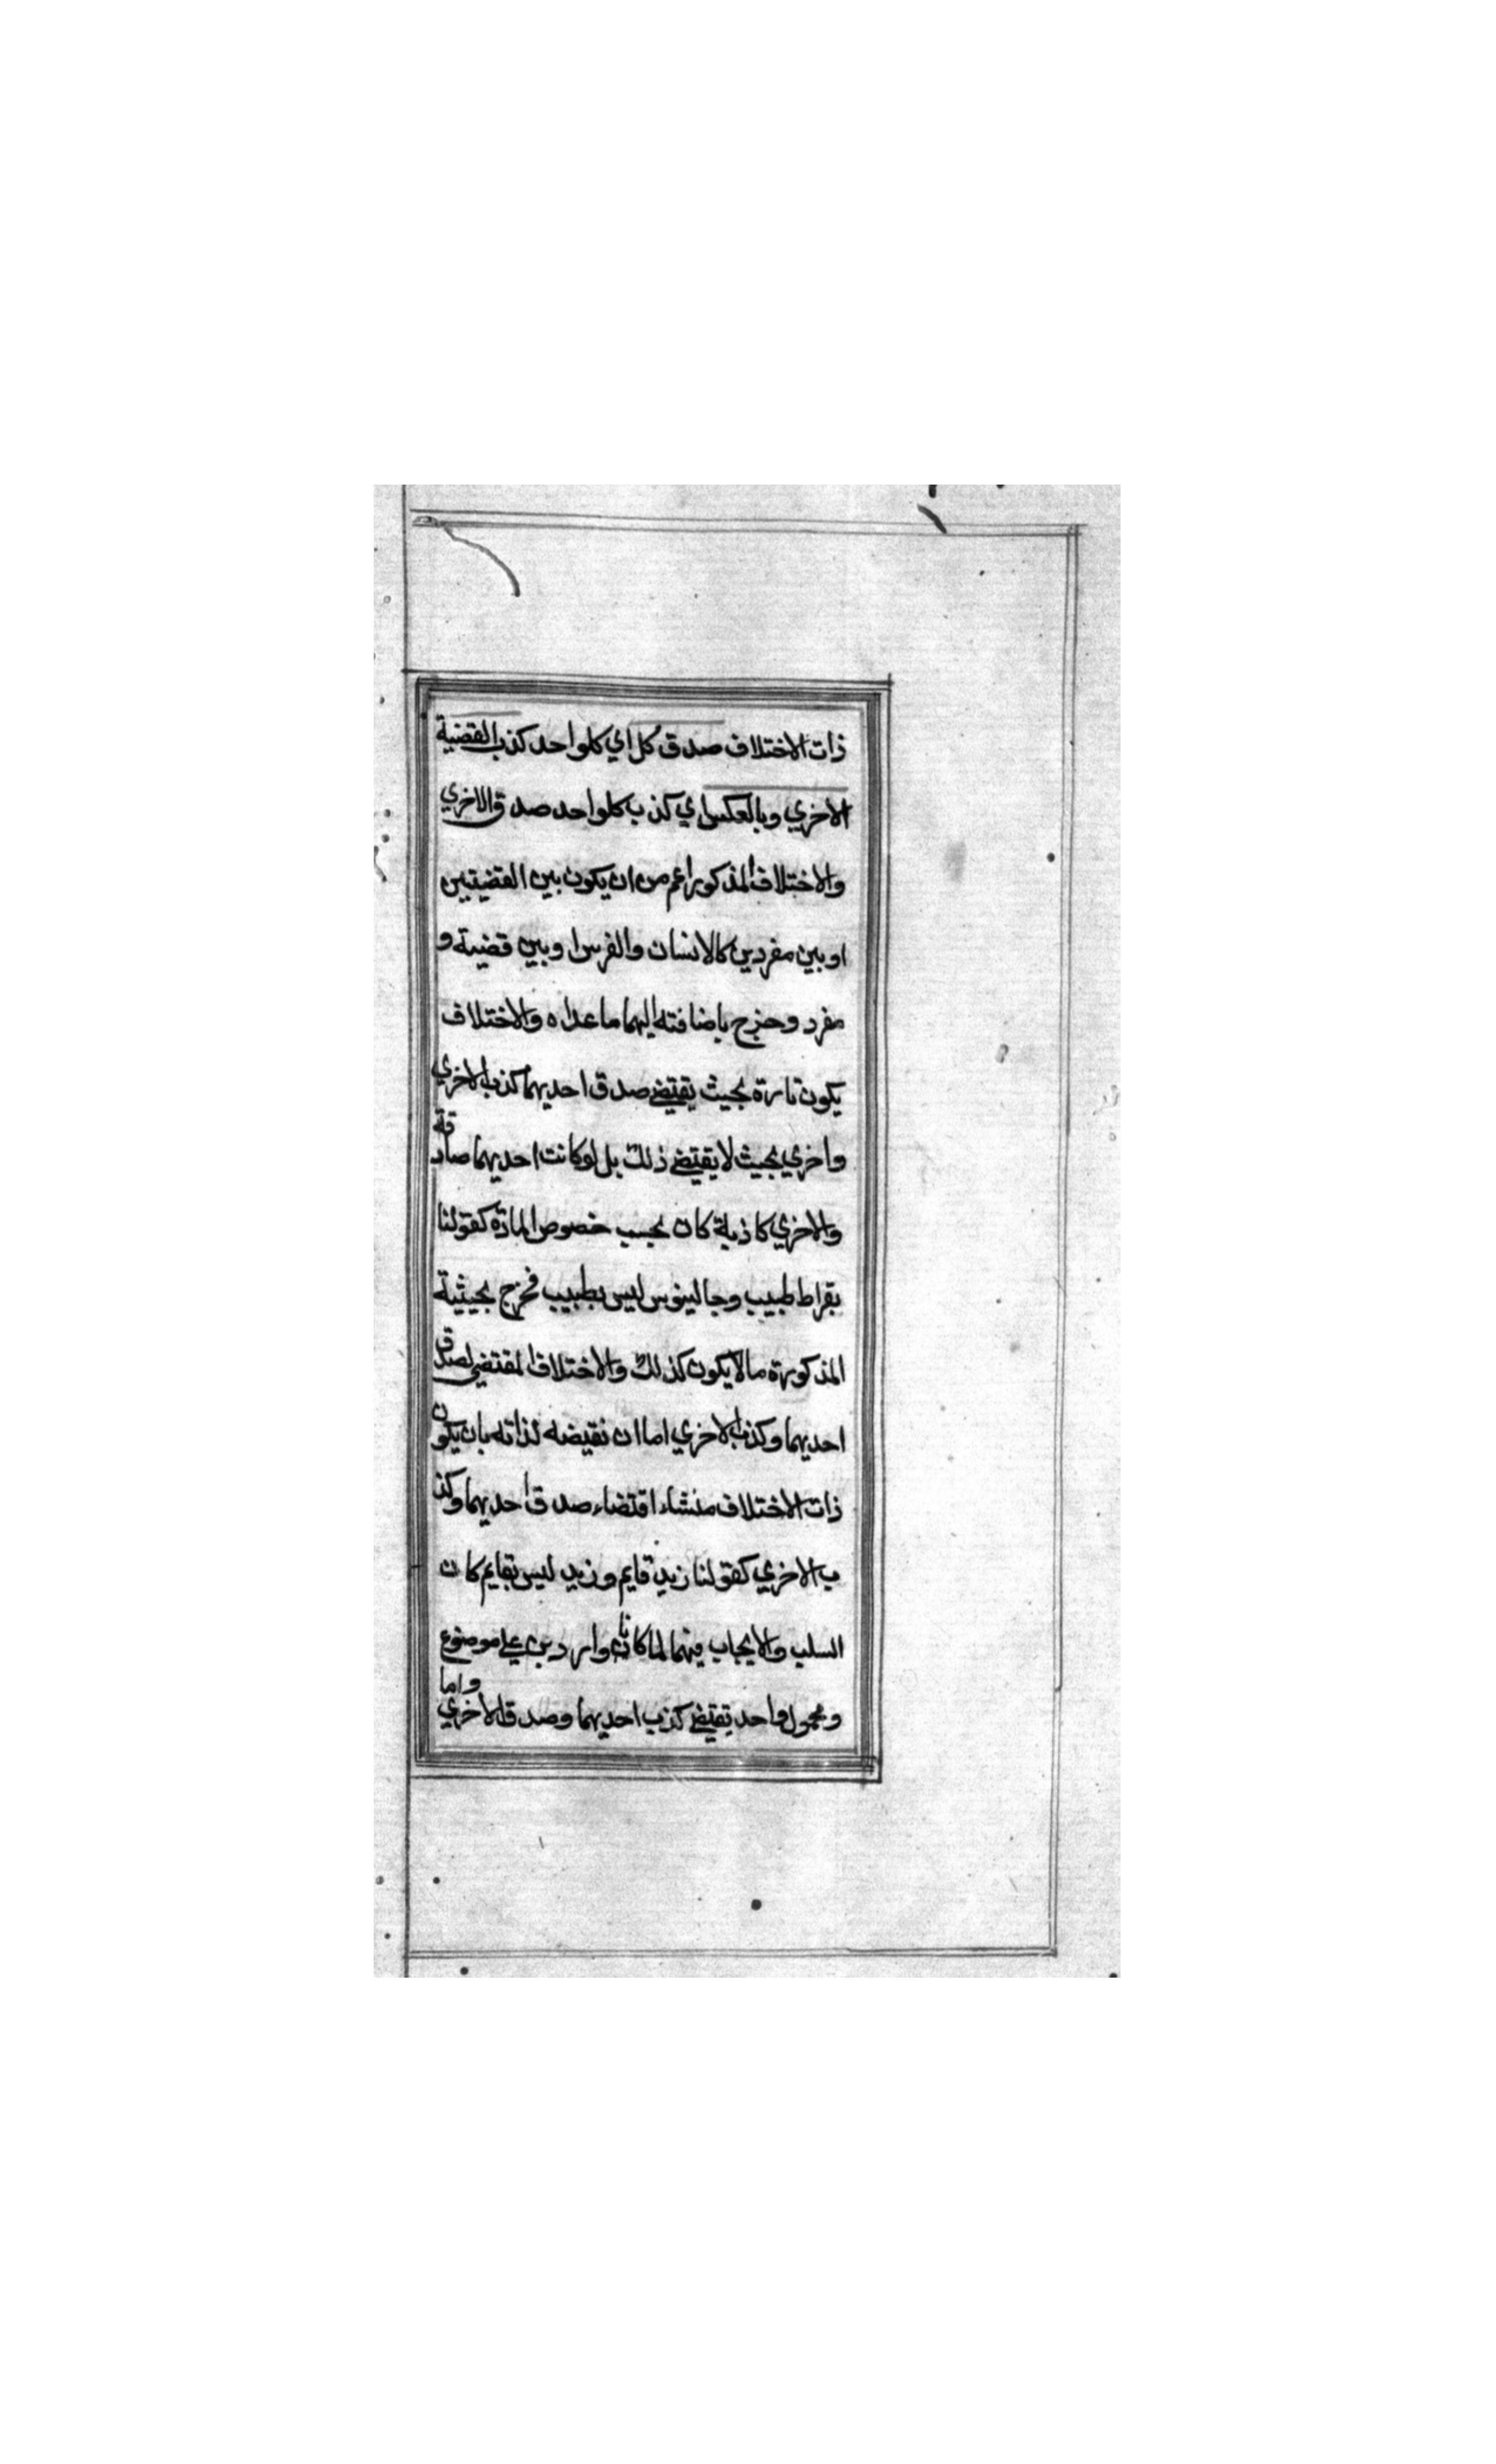 ذات الاختلاف صدق كل اي كلواحد كذب القضية
الاخري وبالعكس اي كذب كلواحد صدق الاخري
والاختلاف المذكور اعم من ان يكون بين القضيتين
او بين مفردين كالانسان والفرس او بين قضية و
مفرد وخرج باضافته اليهما ما عداه والاختلاف
يكون تارة بحيث يقتضي صدق احديهما كذب الاخري
واخري بحيث لا يقتضي ذلك بل لو كانت احديهما صادقة
والاخري كاذبة كان بحسب خصوص المادة كقولنا
بقراط طبيب وجالينوس ليس بطبيب فخرج بحيثية
المذكورة ما لا يكون كذلك والاختلاف المقتضي لصدق
احديهما وكذب الاخري اما ان نقيضه لذاته بان يكون
ذات الاختلاف منشاء اقتضاء صدق احديهما وكذ
ب الاخري كقولنا زيد قايم وزيد ليس بقايم كان
السلب والايجاب فيهما لما كانا واردين علي موضوع
ومحمول واحد تقتضي كذب احديهما وصدق الاخري واما